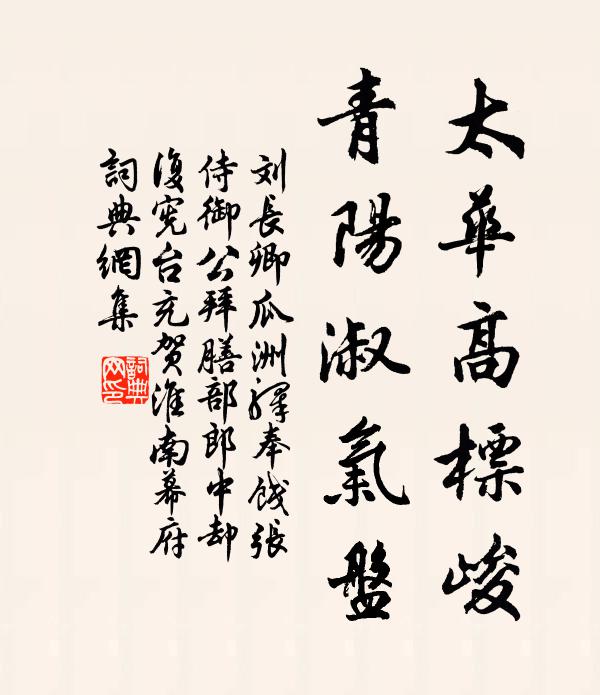 太華高標峻
青陽淑氣盤
刘長卿瓜洲驛奉餞張
侍御公拜膳部郎中却
復宪台充賀淮南幕府
詞典網集
詞典
网印